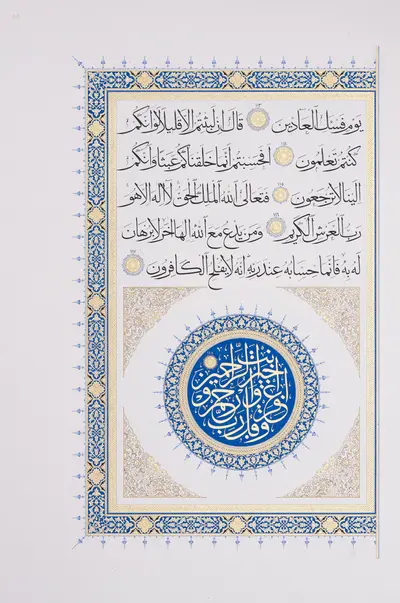 يوم فسئل العادين قال ان لبثتم الا قليلا لو انكم
كنتم تعلمون افحسبتم انما خلقناكم عبثا وانكم
الينا لا ترجعون فتعالى الله الملك الحق لا اله الا هو
رب العرش الكريم ومن يدع مع الله الها اخر لا برهان
له به فانما حسابه عند ربه انه لا يفلح الكافرون
وقل رب اغفر وارحم وانت خير الراحمين